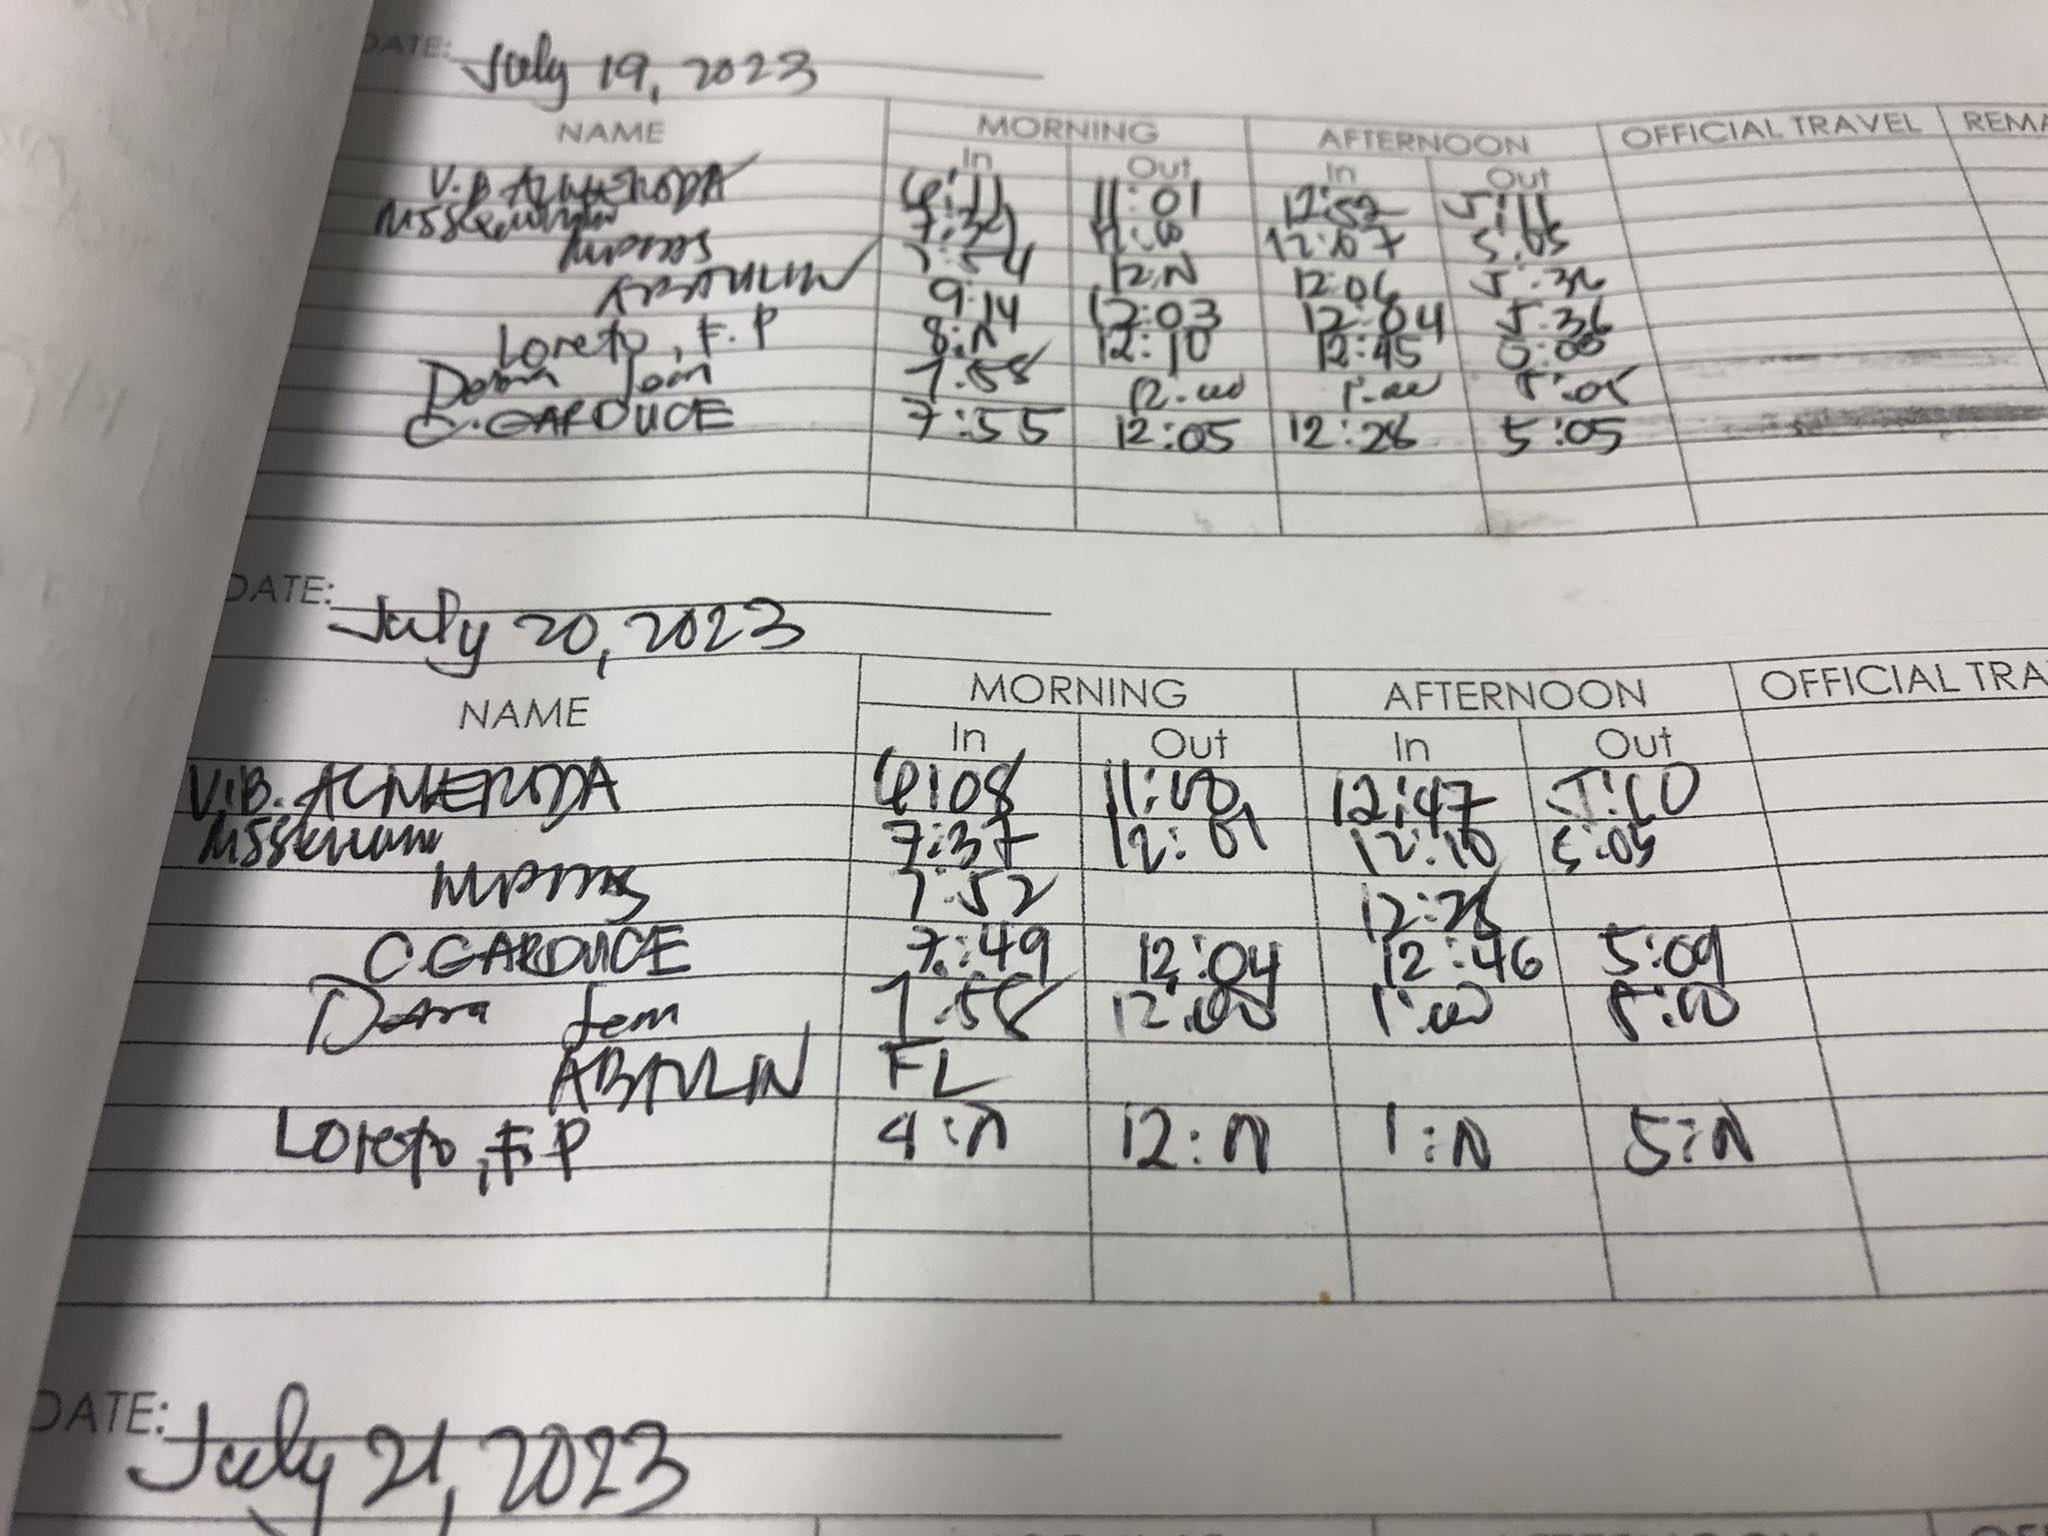 DATE: July 19, 2023
NAME MORNING AFTERNOON OFFICIAL TRAVEL REMA
In Out In Out
V.B ALMERODA 6:11 11:01 12:52 5:11
7:39 12:07 5:05
7:54 12:N 12:06 5:36
ABAULIN 9:14 12:03 12:04 5:36
Loreto, F. P 8:N 12:10 12:45 5:00
7:58 12:00 1:00 5:05
C. GARDUCE 7:55 12:05 12:28 5:05
DATE: July 20, 2023
NAME MORNING AFTERNOON OFFICIAL TRA
In Out In Out
V.B. ALMERODA 6:08 11:00 12:47 5:10
7:37 12:01 12:10 5:05
7:52 12:28
C. GARDUCE 7:49 12:04 12:46 5:09
7:58 12:00 1:00 5:10
ABAULIN FL
Loreto, F. P 4:N 12:N 1:N 5:N
DATE: July 21, 2023